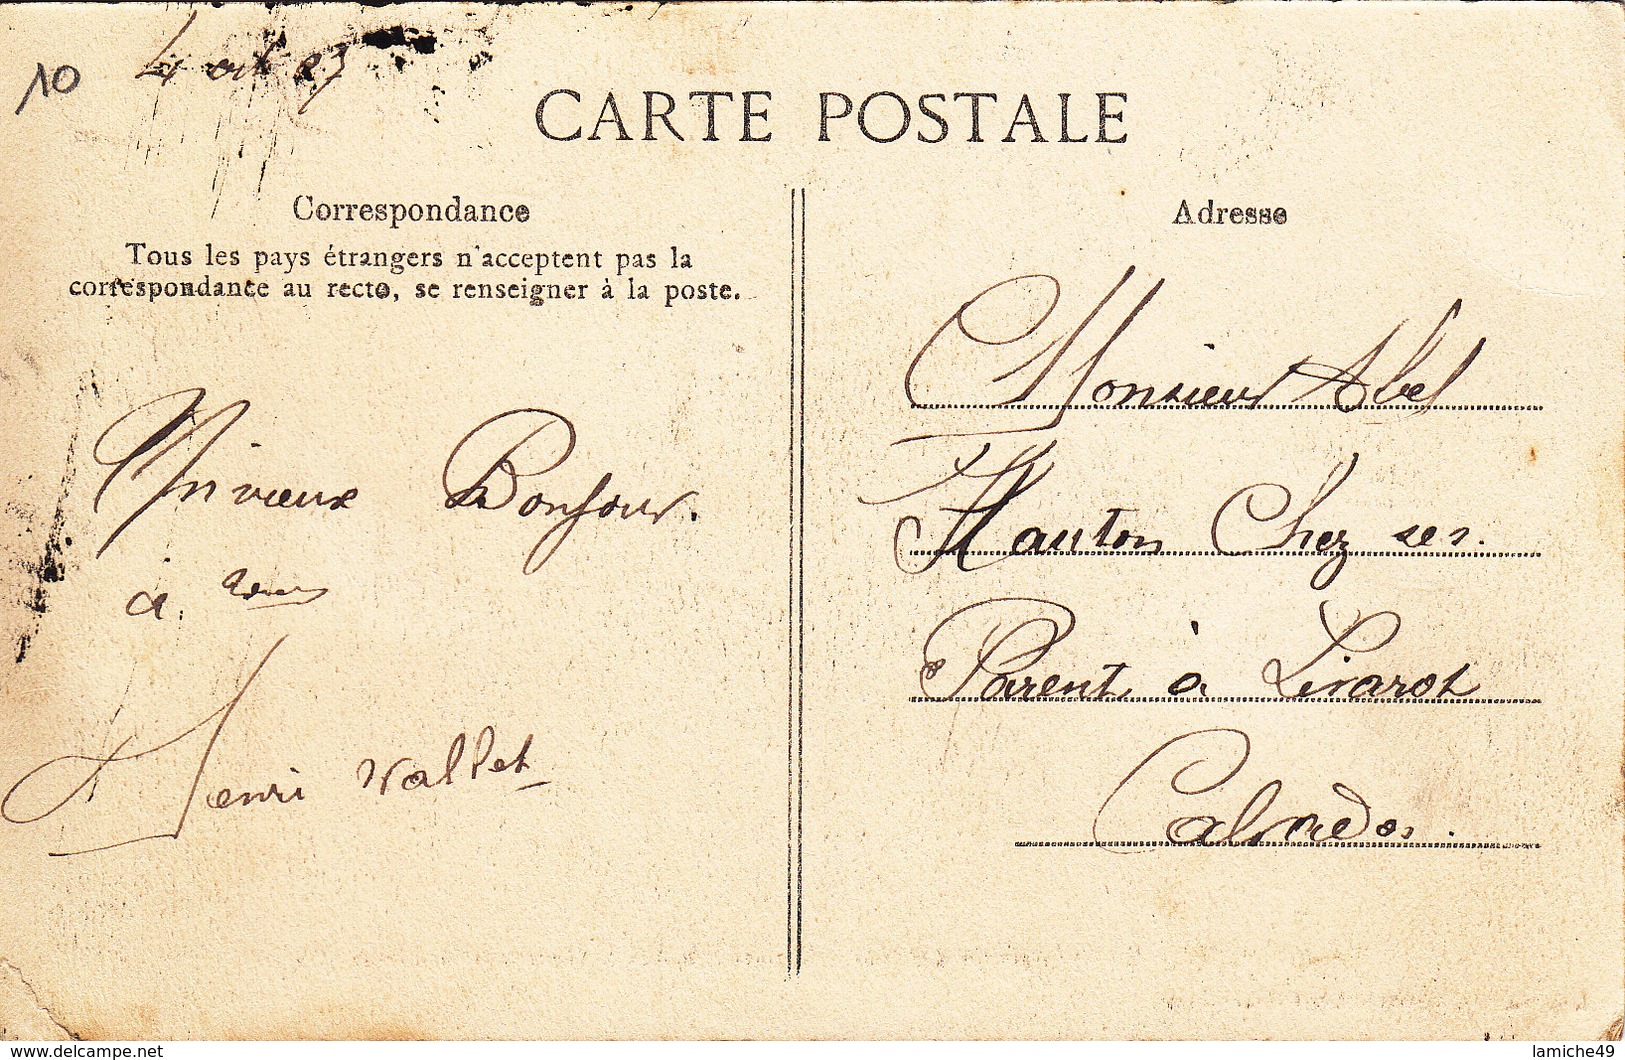 10
4 oct 07
CARTE POSTALE
Correspondance
Tous les pays étrangers n'acceptent pas la
correspondance au recto, se renseigner à la poste.
Bonjour.
à
Henri Vallet
Adresse
Monsieur Abel
Hauton Chez ses
Parent à Livarot
Calvados.
www.delcampe.net
lamiche49